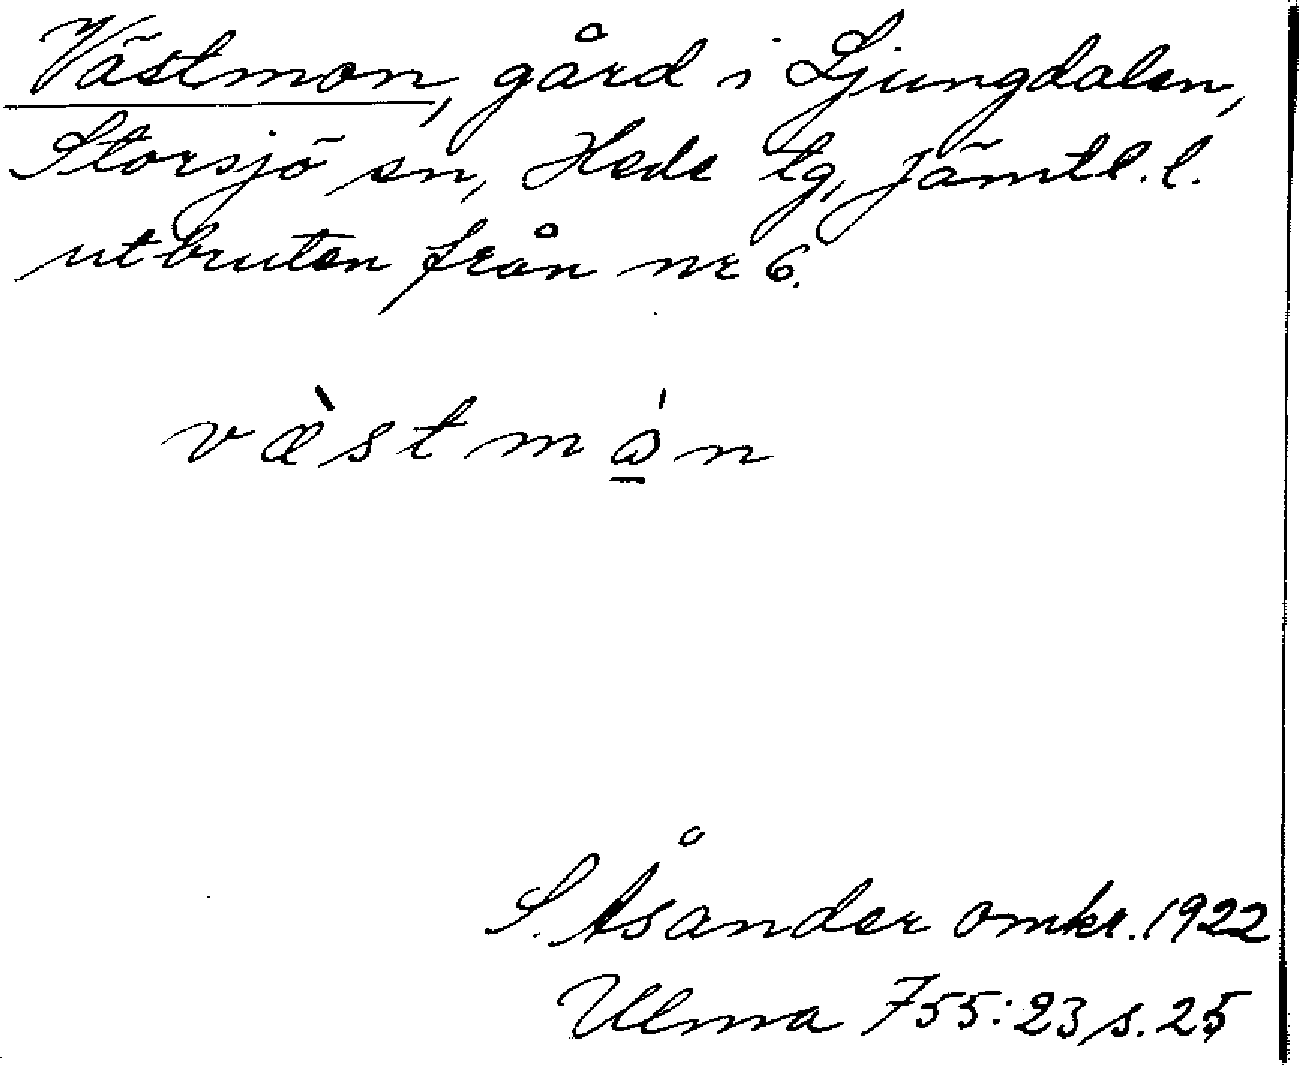 Västmon, gård i Ljungdalen,
Storsjö sn, Hede tg, Jämtl. l.
utbruten från nr 6.
væ̀stmώn
S. Åsander omkr. 1922
Ulma 755:23 s. 25